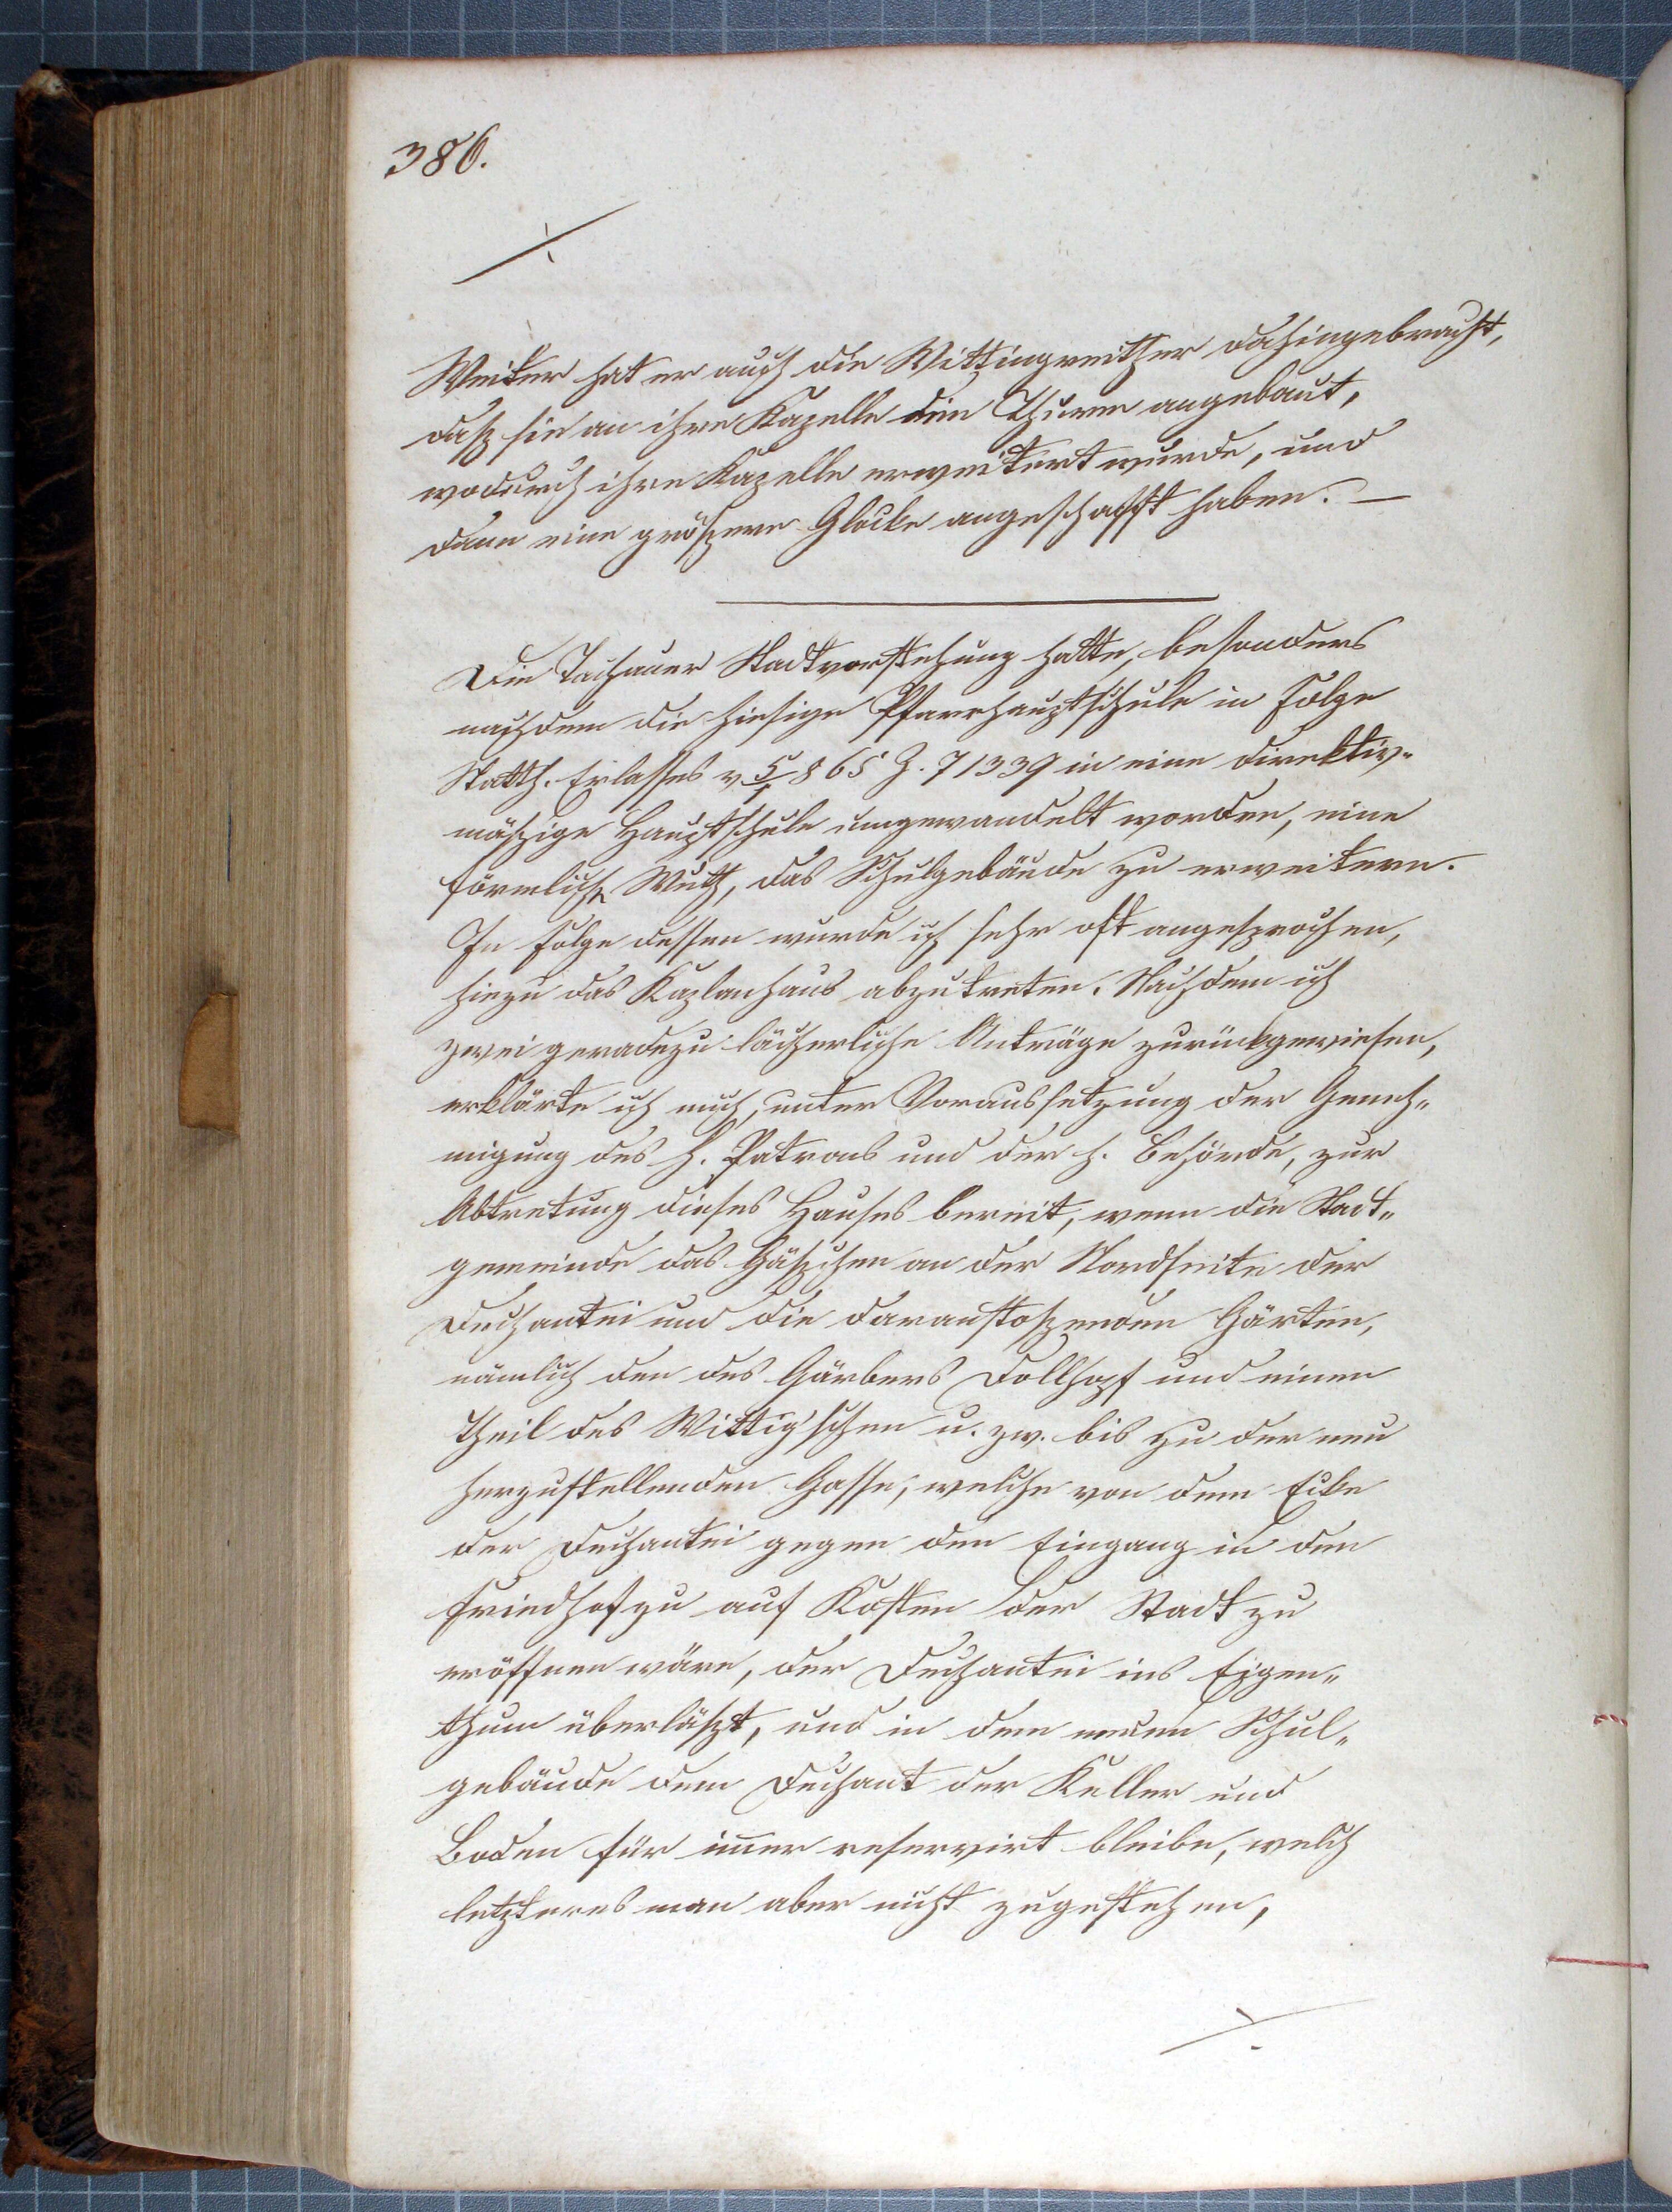 386.
./.
Weiter hat er auch die Wittingreither dahingebracht,
daß sie an ihre Kapelle ein Thurm angebaut,
wodurch ihre Kapelle erweitert wurde, und
dann eine größere Glocke angeschafft haben. —
Die Tachauer Stadtvorstehung hatte, besonders
nachdem die hiesige Pfarrhauptschule in Folge
Statth. Erlasses v 5/ 865 Z. 71339 in eine direktiv„
mäßige Hauptschule umgewandelt worden, eine
förmliche Wuth, das Schulgebäude zu erweitern.
In Folge dessen wurde ich sehr oft angesprochen,
hiezu das Kaplanhaus abzutreten. Nachdem ich
zwei geradezu lächerliche Anträge zurückgewiesen,
erklärte ich mich, unter Voraussetzung der Geneh„
migung des h. Patrons und der h. Behörde, zur
Abtretung dieses Hauses bereit, wenn die Stadt„
gemeinde das Gäßchen an der Nordseite der
Dechantei und die daranstoßenden Gärten,
nämlich den des Gärbers Dollhopf und einen
Theil des Wittig'schen u. zw. bis zu der neu
herzustellenden Gasse, welche von dem Ecke
der Dechantei gegen den Eingang in den
Friedhof zu auf Kosten der Stadt zu
eröffnen wäre, der Dechantei ins Eigen„
thum überläßt, und in dem neuen Schul„
gebäude dem Dechant der Keller und
Boden für im̄er reservirt bleibe, welch
letzteres man aber nicht zugestehen,
./.